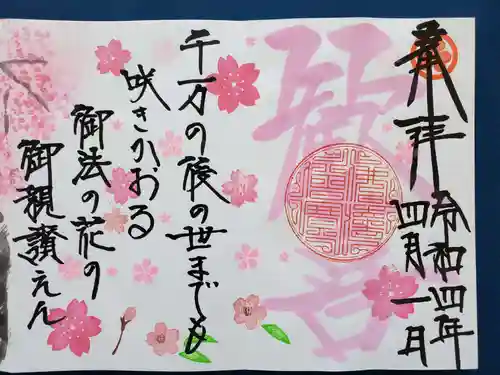 奉拝
令和四年
四月一日
歓喜
千万の後の世までも
咲きかおる
御法の花の
御親讃えん